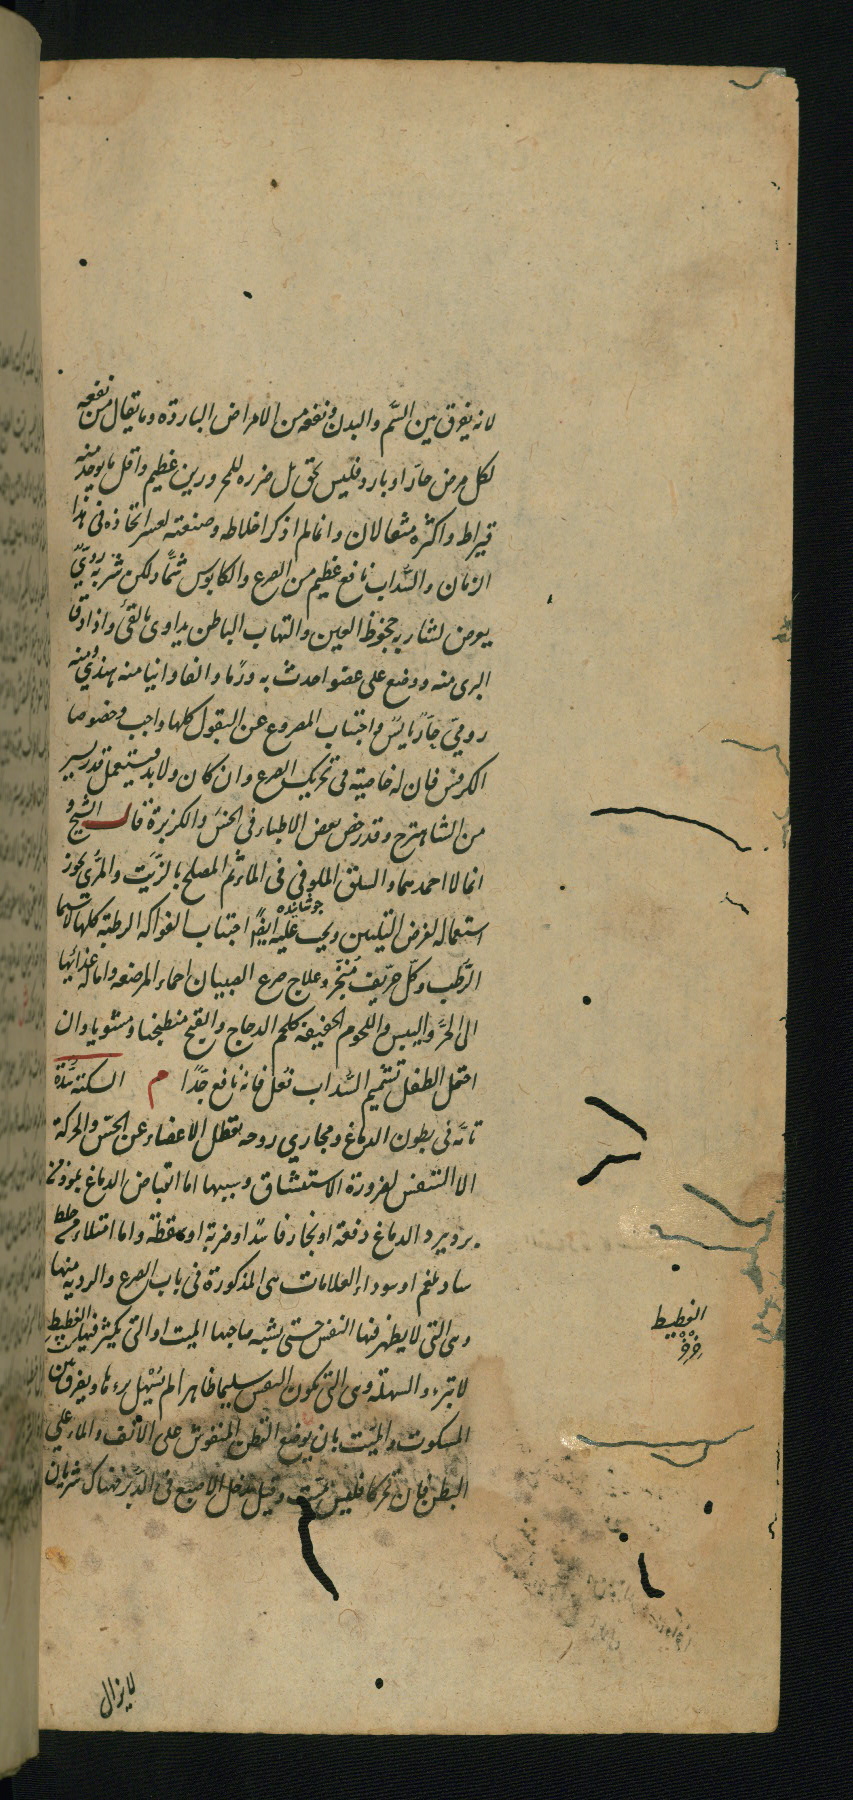 لانه يفرق بين السّم والبدن ونفعه من الامراض الباردة وما يقال من نفعه
لكل مرض حار او بارد فليس بحق بل ضرره للمحرورين عظيم واقل ما يوخذ منه
قيراط واكثره مثقالان وانما لم اذكر اخلاطه وصنعته لعسر اتخاذه فى هذا
الزمان والسّداب نافع عظيم من الصرع والكابوس شمًّا ولكن شربه ردىّ
يعرض لشاربه جحوظ العين والتهاب الباطن يداوى بالقئ واذا دق
البرى منه ووضع على عضو احدث به ورمًا والفاوانيا منه هندىّ ومنه
رومىّ حارّ يابسٌ واجتناب المصروع عن البقول كلها واجب وخصوصا
الكرفس فان له خاصية فى تحريك الصرع وان كان ولابد فيستعمل قدر يسير
من الشاهترج وقد رخص بعض الاطباء فى الخسّ والكزبرة قال الشيخ و
انا لا احمدهما والسلق الملوفى فى الماء ثم المصلح بالزّيت والمرّى يجوز
استعماله لغرض التليين ويجب عليه ايضًا اجتناب الفواكه الرطبة كلها لا سيما
جوشانیده
الرّطب وكلّ حرّيف مبخّر وعلاج صرع الصبيان احماء المرضعه وامالة غذائها
الى الحرّ واليبس واللحوم الخفيفة كلحم الدجاج والقبج منطبخا ومشويا وان
احتمل الطفل تشميم السّداب فعل فانه نافع جّدًا م السكتة سُدّة
تامّة فى بطون الدماغ ومجارى روحه بعطل الاعضاء عن الحسّ والحركة
الا التنفس لضرورة الاستنشاق وسببها اما انقباض الدماغ لموذ من
برد يبرد الدماغ دفعة او بخار فاسد او ضربة او سقطة واما امتلاء من خلط
ساد بلغم او سوداء العلامات هى المذكورة فى باب الصرع والرديه منها
وهى التى لا يظهر فيها النفس حتى يشبه صاحبها الميت او التى يكثر فيها الغطيط
لا تبرء والسهلة وهى التى تكون النفس سليما ظاهرا لم يسهل برءها ويفرق بين
المسكوت والميّت بان يوضع القطن المنفوش على الانف والماء على
البطن فان تحركا فليس بميت وقيل يدخل الاصبع فى الدّبر فهناك شريان
الغطيط
لا يزال